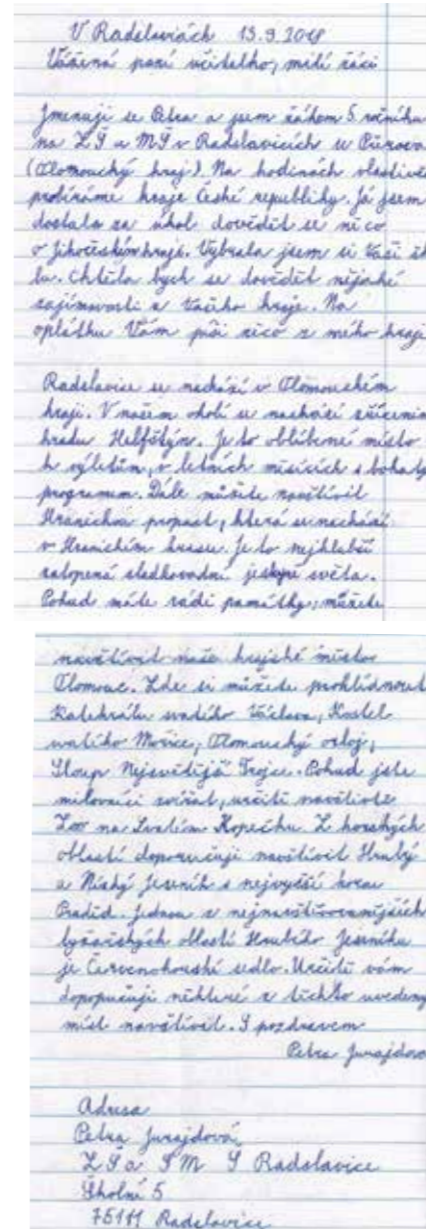 V Radslavicích 13.9.2018
Vážená paní učitelko, milí žáci
Jmenuji se Petra a jsem žákem 5. ročníku
na ZŠ a MŠ v Radslavicích u Přerova
(Olomoucký kraj). Na hodinách vlastivě
probíráme kraje České republiky. Já jsem
dostala za úkol dovědět se něco
o Jihočeském kraji. Vybrala jsem si Vaši šk
lu. Chtěla bych se dovědět nějaké
zajímavosti z Vašeho kraje. Na
oplátku Vám píši něco z mého kraje
Radslavice se nachází v Olomouckém
kraji. V našem okolí se nachází zřícenina
hradu Helfštýn. Je to oblíbené místo
k výletům, v letních měsících s bohatý
programem. Dále můžete navštívit
Hranickou propast, která se nachází
v Hranickém krasu. Je to nejhlubší
zatopená sladkovodní jeskyně světa.
Pokud máte rádi památky, můžete
navštívit naše krajské město
Olomouc. Zde si můžete prohlédnout
Katedrálu svatého Václava, Kostel
svatého Mořice, Olomoucký orloj,
Sloup Nejsvětější Trojce. Pokud jste
milovníci zvířat, určitě navštivte
Zoo na Svatém Kopečku. Z horských
oblastí doporučuji navštívit Hrubý
a Nízký Jeseník s nejvyšší horou
Praděd. Jednou z nejnavštěvovanějších
lyžařských oblastí Hrubého Jeseníku
je Červenohorské sedlo. Určitě vám
dopopučuji některé z těchto uvedený
míst navštívit. S pozdravem
Petra Jurajdová
Adresa
Petra Jurajdová
ZŠ a M Š Radslavice
Školní 5
75111 Radslavice